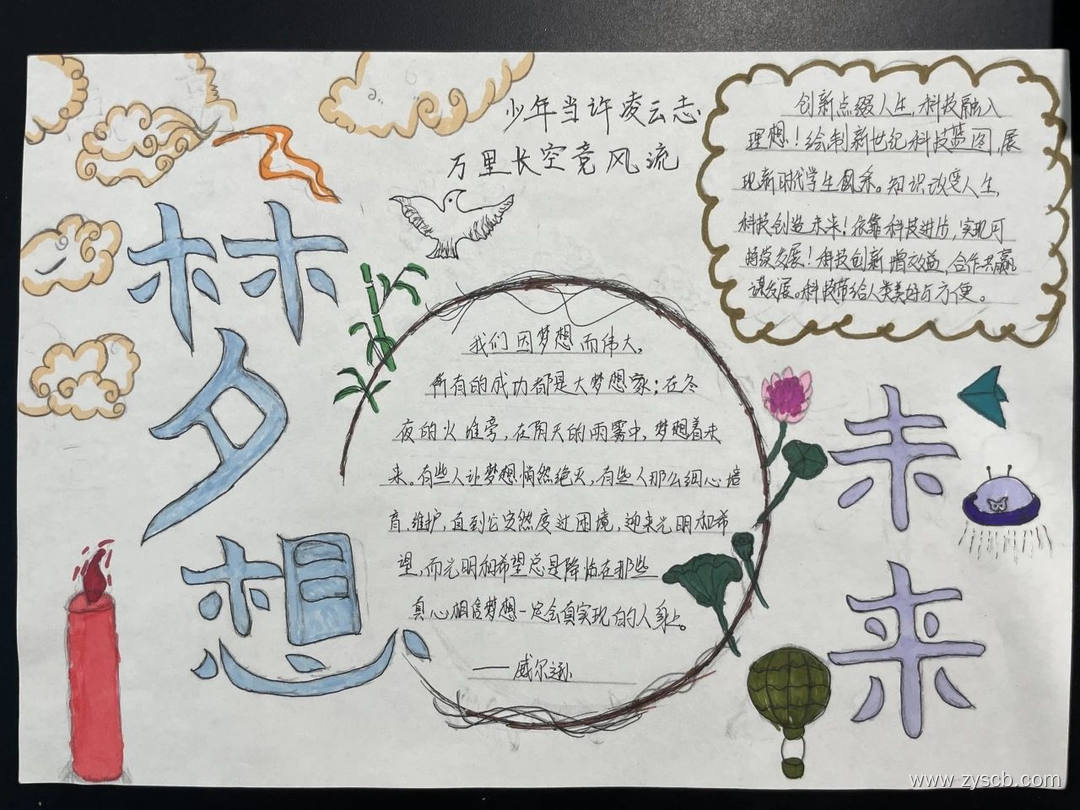 少年当许凌云志
万里长空竞风流
创新点缀人生,科技融入
理想!绘制新世纪科技蓝图,展
现新时代学生风采。知识改变人生,
科技创造未来!依靠科技进步,实现可
持续发展!科技创新增效益,合作共赢
谋发展。科技带给人类美好与方便。
梦想
我们因梦想而伟大,
所有的成功都是大梦想家:在冬
夜的火堆旁,在阴天的雨雾中,梦想着未
来。有些人让梦想悄然绝灭,有些人那么细心培
育、维护,直到它安然度过困境,迎来光明和希
望,而光明和希望总是降临在那些
真心相信梦想一定会真实现的人身上。
——威尔逊
未来
www.zyscb.com